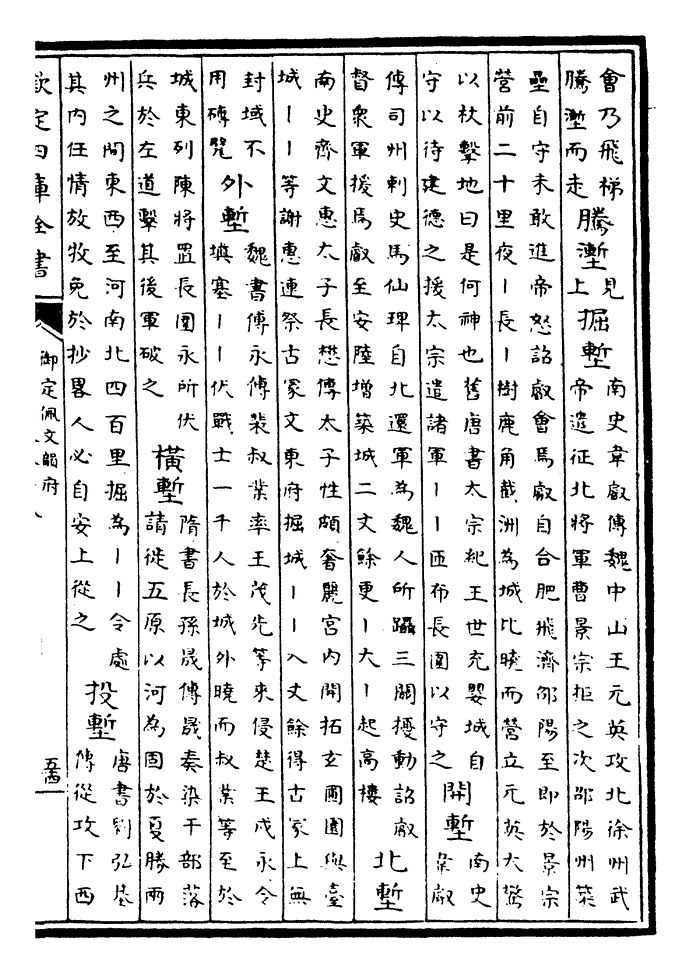 會乃飛梯
騰塹而走
騰塹
見
上
掘塹
南史韋叡傳魏中山王元英攻北徐州武
帝遣征北將軍曹景宗拒之次邵陽州築
壘自守未敢進帝怒詔叡會馬叡自合肥飛濟邵陽至即於景宗
營前二十里夜丨長丨樹鹿角截洲為城比曉而營立元英大驚
以杖擊地曰是何神也舊唐書太宗紀王世充嬰城自
守以待建德之援太宗遣諸軍丨丨匝布長圍以守之
開塹
南史
韋叡
傳司州刺史馬仙琕自北還軍為魏人所躡三關擾動詔叡
督衆軍援馬叡至安陸增築城二丈餘更丨大丨起高樓
北塹
南史齊文惠太子長懋傳太子性頗奢麗宮内開拓玄圃園與臺
城丨丨等謝惠連祭古冢文東府掘城丨丨入丈餘得古冢上無
封域不
用磚甓
外塹
魏書傅永傳裴叔業率王茂先等來侵楚王戍永令
填塞丨丨伏戰士一千人於城外曉而叔業等至於
城東列陳將置長圍永所伏
兵於左道擊其後軍破之
橫塹
隋書長孫晟傳晟奏染干部落
請徙五原以河為固於夏勝兩
州之間東西至河南北四百里掘為丨丨令處
其内任情放牧免於抄畧人必自安上從之
投塹
唐書劉弘基
傳從攻下西
欽定四庫全書
御定佩文韻府